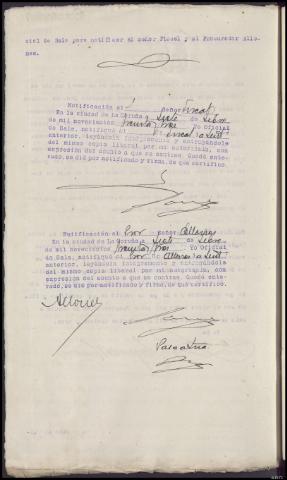 cial de Sala para notificar al señor Fiscal y al Procurador Allo-
nes.
Notificación al señor Fiscal
En la ciudad de La Coruña a siete de Sbre
de mil novecientos treinta y Yo Oficial
de Sala, notifiqué al Sr. Fiscal la Sent.
anterior, leyéndole íntegramente y entregándole
del mismo copia literal por mi autorizada, con
expresión del asunto a que se contrae. Quedó ente-
rado, se dió por notificado y firma, de que certifico.
Notificación al Pror señor Allones
En la ciudad de La Coruña a siete de Sbre
de mil novecientos treinta y Yo Oficial
de Sala, notifiqué al Pror Allones la Sent.
anterior, leyéndole íntegramente y entregándole
del mismo copia literal por mi autorizada, con
expresión del asunto a que se contrae. Quedó ente-
rado, se dió por notificado y firma, de que certifico.
Allones